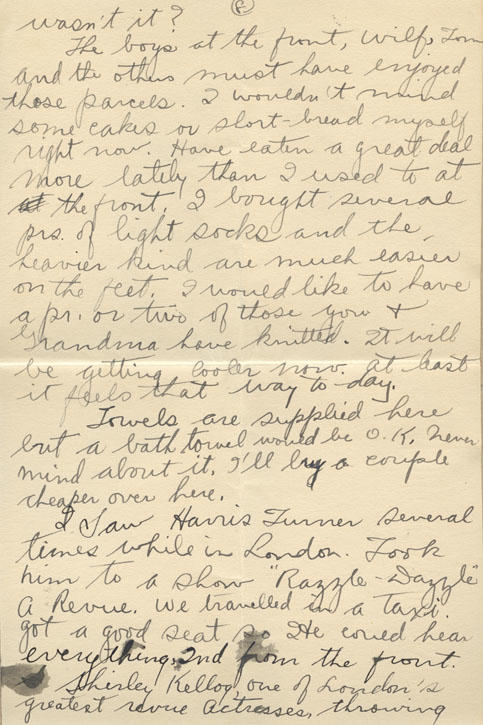 (8)
wasn't it?
The boys at the front, Wilf, Tom
and the others must have enjoyed
those parcels. I wouldn't mind
some cakes or short-bread myself
right now. Have eaten a great deal
more lately than I used to at
the front. I bought several
prs. of light socks and the
heavier kind are much easier
on the feet. I would like to have
a pr. or two of those you +
Grandma have knitted. It will
be getting cooler now. At least
it feels that way to-day.
Towels are supplied here
but a bath towel would be O.K. Never
mind about it. I'll buy a couple
cheaper over here.
I saw Harris Turner several
times while in London. Took
him to a show "Razzle-Dazzle"
a Revue. We travelled in a taxi.
got a good seat so He could hear
everything. 2nd from the front.
Shirley Kellog, one of London's
greatest revue actresses, throwing